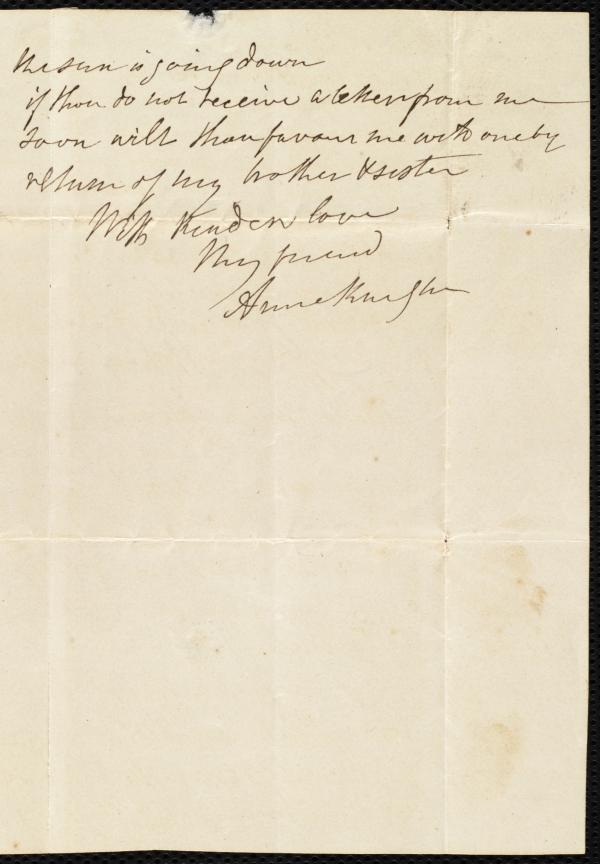 the sun is going down
if thou do not receive a letter from me
soon wilt thou favour me with one by
return of my brother & sister
With kindest love
Thy friend
Anne Knight